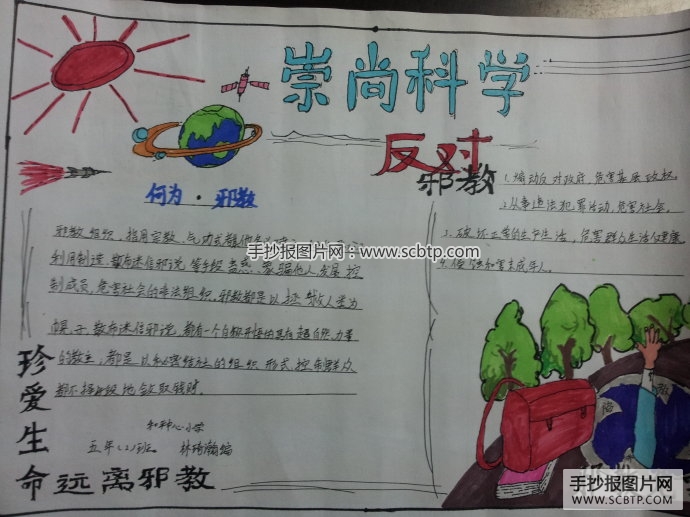 崇尚科学
反对
邪教
何为·邪教
邪教组织,指用宗教、气功或
手抄报图片网
www.scbtp.com
利用制造、散布迷信邪说等手段蛊惑、蒙骗他人,发展、控
制成员,危害社会的非法组织。邪教都是以拯救人类为
幌子,散布迷信邪说,都有一个自称开悟的具有超自然力量
的教主,都是以秘密结社的组织形式控制群众
都不择手段地敛取钱财。
中心小学
五年(2)班
编
1.煽动反对政府,危害基层政权
2.从事违法犯罪活动,危害社会。
3.破坏正常的生产生活,危害群众生活健康
4.侵害未成年人。
珍爱生命远离邪教
手抄报图片网
WWW.SCBTP.COM